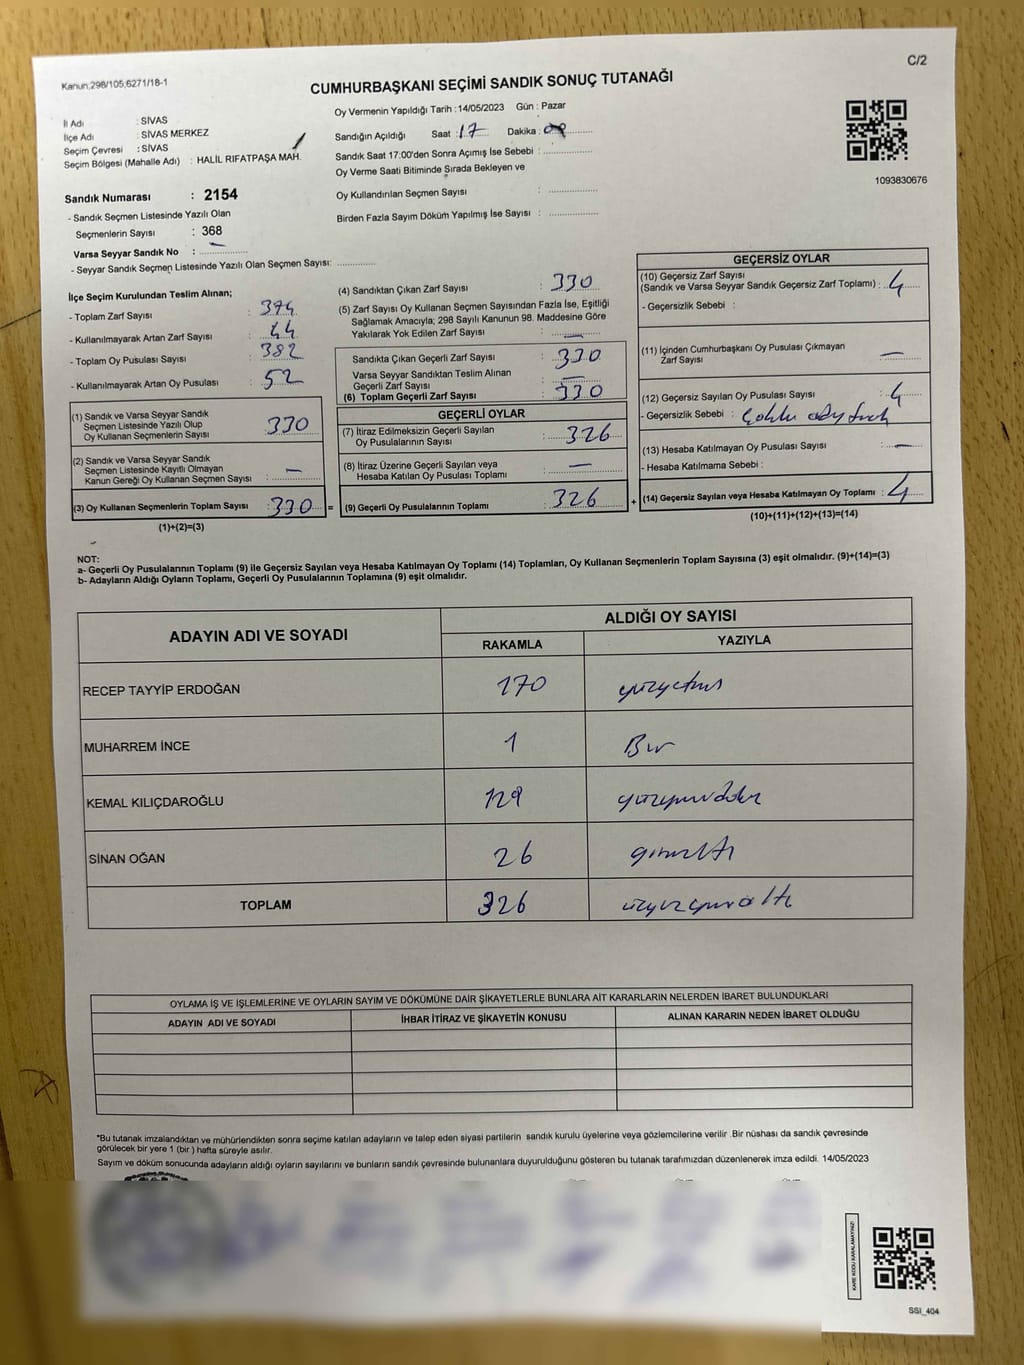 C/2
Kanun,298/105,6271/18-1
CUMHURBAŞKANI SEÇİMİ SANDIK SONUÇ TUTANAĞI
İl Adı : SİVAS
İlçe Adı : SİVAS MERKEZ
Seçim Çevresi : SİVAS
Seçim Bölgesi (Mahalle Adı) : HALİL RIFATPAŞA MAH.
Sandık Numarası : 2154
- Sandık Seçmen Listesinde Yazılı Olan
Seçmenlerin Sayısı : 368
Varsa Seyyar Sandık No : —
- Seyyar Sandık Seçmen Listesinde Yazılı Olan Seçmen Sayısı: ............
Oy Vermenin Yapıldığı Tarih : 14/05/2023 Gün : Pazar
Sandığın Açıldığı Saat : 17 Dakika :
Sandık Saat 17:00'den Sonra Açımış İse Sebebi : ...............
Oy Verme Saati Bitiminde Sırada Bekleyen ve
Oy Kullandırılan Seçmen Sayısı : ...............
Birden Fazla Sayım Döküm Yapılmış İse Sayısı : ...............
1093830676
İlçe Seçim Kurulundan Teslim Alınan;
- Toplam Zarf Sayısı : 374
- Kullanılmayarak Artan Zarf Sayısı : 44
- Toplam Oy Pusulası Sayısı : 382
- Kullanılmayarak Artan Oy Pusulası : 52
(1) Sandık ve Varsa Seyyar Sandık
Seçmen Listesinde Yazılı Olup
Oy Kullanan Seçmenlerin Sayısı : 330
(2) Sandık ve Varsa Seyyar Sandık
Seçmen Listesinde Kayıtlı Olmayan
Kanun Gereği Oy Kullanan Seçmen Sayısı : —
(3) Oy Kullanan Seçmenlerin Toplam Sayısı : 330 =
(1)+(2)=(3)
(4) Sandıktan Çıkan Zarf Sayısı : 330
(5) Zarf Sayısı Oy Kullanan Seçmen Sayısından Fazla İse, Eşitliği
Sağlamak Amacıyla; 298 Sayılı Kanunun 98. Maddesine Göre
Yakılarak Yok Edilen Zarf Sayısı : —
Sandıkta Çıkan Geçerli Zarf Sayısı : 330
Varsa Seyyar Sandıktan Teslim Alınan
Geçerli Zarf Sayısı : —
(6) Toplam Geçerli Zarf Sayısı : 330
GEÇERLİ OYLAR
(7) İtiraz Edilmeksizin Geçerli Sayılan
Oy Pusulalarının Sayısı : 326
(8) İtiraz Üzerine Geçerli Sayılan veya
Hesaba Katılan Oy Pusulası Toplamı : —
(9) Geçerli Oy Pusulalarının Toplamı : 326 +
GEÇERSİZ OYLAR
(10) Geçersiz Zarf Sayısı
(Sandık ve Varsa Seyyar Sandık Geçersiz Zarf Toplamı) : 4
- Geçersizlik Sebebi :
(11) İçinden Cumhurbaşkanı Oy Pusulası Çıkmayan
Zarf Sayısı : —
(12) Geçersiz Sayılan Oy Pusulası Sayısı : 4
- Geçersizlik Sebebi :
(13) Hesaba Katılmayan Oy Pusulası Sayısı : —
- Hesaba Katılmama Sebebi :
(14) Geçersiz Sayılan veya Hesaba Katılmayan Oy Toplamı : 4
(10)+(11)+(12)+(13)=(14)
NOT:
a- Geçerli Oy Pusulalarının Toplamı (9) ile Geçersiz Sayılan veya Hesaba Katılmayan Oy Toplamı (14) Toplamları, Oy Kullanan Seçmenlerin Toplam Sayısına (3) eşit olmalıdır. (9)+(14)=(3)
b- Adayların Aldığı Oyların Toplamı, Geçerli Oy Pusulalarının Toplamına (9) eşit olmalıdır.
ADAYIN ADI VE SOYADI
ALDIĞI OY SAYISI
RAKAMLA YAZIYLA
RECEP TAYYİP ERDOĞAN 170 yüzyetmiş
MUHARREM İNCE 1 Bir
KEMAL KILIÇDAROĞLU 129 yüzyirmidokuz
SİNAN OĞAN 26 yirmialtı
TOPLAM 326 üçyüzyirmialtı
OYLAMA İŞ VE İŞLEMLERİNE VE OYLARIN SAYIM VE DÖKÜMÜNE DAİR ŞİKAYETLERLE BUNLARA AİT KARARLARIN NELERDEN İBARET BULUNDUKLARI
ADAYIN ADI VE SOYADI İHBAR İTİRAZ VE ŞİKAYETİN KONUSU ALINAN KARARIN NEDEN İBARET OLDUĞU
"Bu tutanak imzalandıktan ve mühürlendikten sonra seçime katılan adayların ve talep eden siyasi partilerin sandık kurulu üyelerine veya gözlemcilerine verilir .Bir nüshası da sandık çevresinde
görülecek bir yere 1 (bir ) hafta süreyle asılır.
Sayım ve döküm sonucunda adayların aldığı oyların sayılarını ve bunların sandık çevresinde bulunanlara duyurulduğunu gösteren bu tutanak tarafımızdan düzenlenerek imza edildi. 14/05/2023
KARE KODU KARALAMAYINIZ!
SSI_404